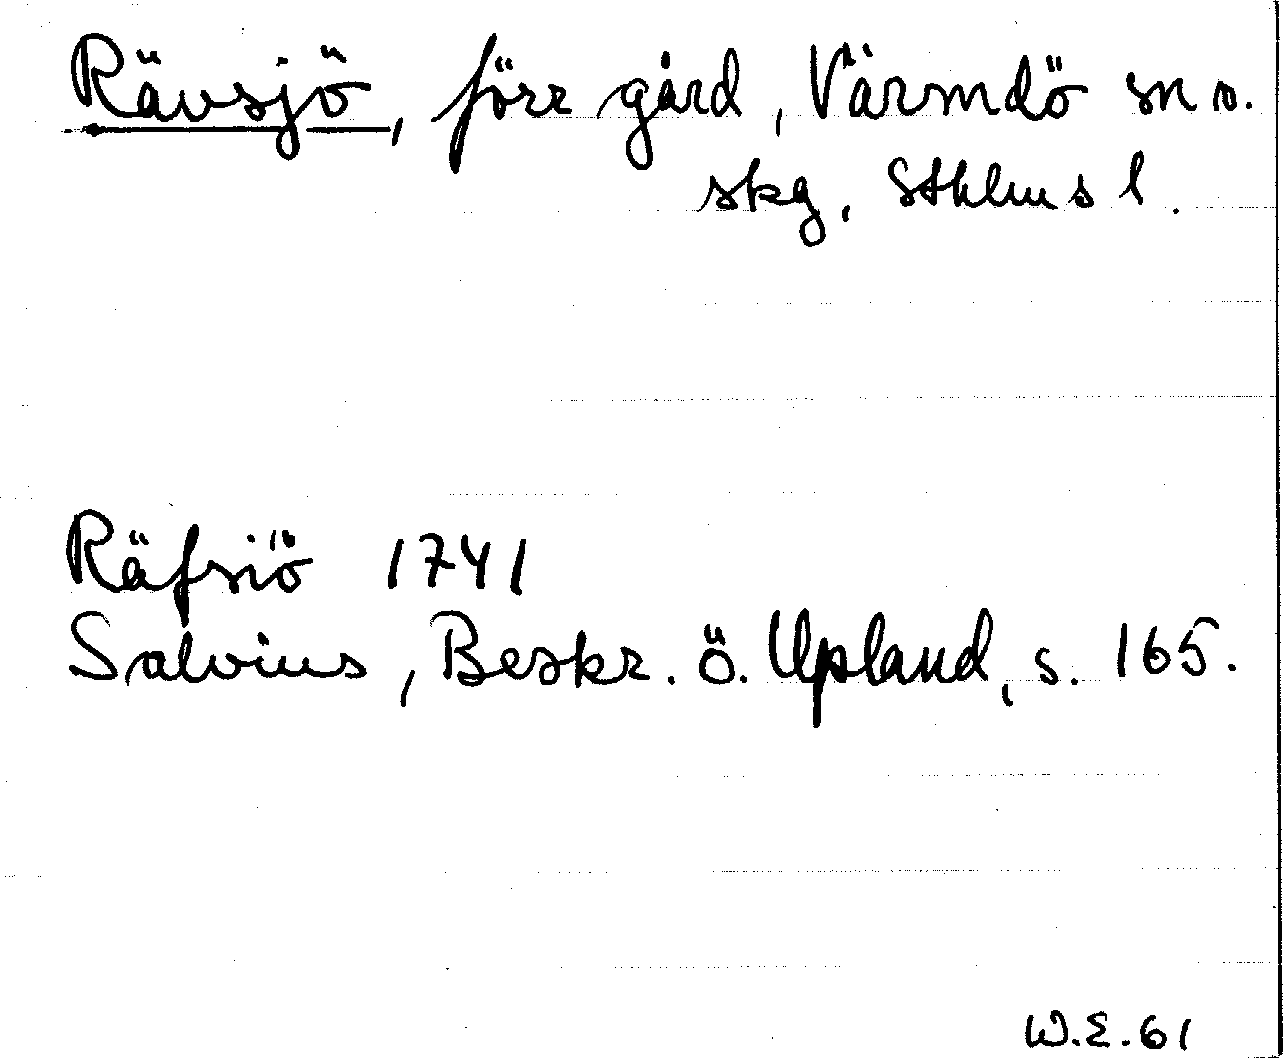 Rävsjö, förr gård, Värmdö sn o.
skg, Sthlms l.
Räfsiö 1741
Salvius, Beskr. ö. Upland, s. 165.
W.E.61